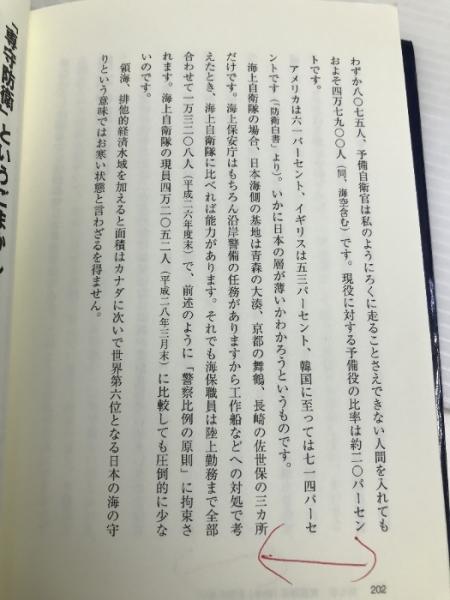 わずか八〇七五人、予備自衛官は私のようにろくに走ることさえできない人間を入れても
およそ四万七九〇〇人(同、海空含む)です。現役に対する予備役の比率は約二〇パーセン
トです。
アメリカは六一パーセント、イギリスは五三パーセント、韓国に至っては七一四パーセ
ントです(『防衛白書』より)。いかに日本の層が薄いかわかろうというものです。
海上自衛隊の場合、日本海側の基地は青森の大湊、京都の舞鶴、長崎の佐世保の三カ所
だけです。海上保安庁はもちろん沿岸警備の任務がありますから工作船などへの対処で考
えたとき、海上自衛隊に比べれば能力があります。それでも海保職員は陸上勤務まで全部
合わせて一万三二〇八人(平成二六年度末)で、前述のように「警察比例の原則」に拘束さ
れます。海上自衛隊の現員四万二〇五二人(平成二八年三月末)に比較しても圧倒的に少な
いのです。
領海、排他的経済水域を加えると面積はカナダに次いで世界第六位となる日本の海の守
りという意味ではお寒い状態と言わざるを得ません。
「専守防衛」というごまかし
202